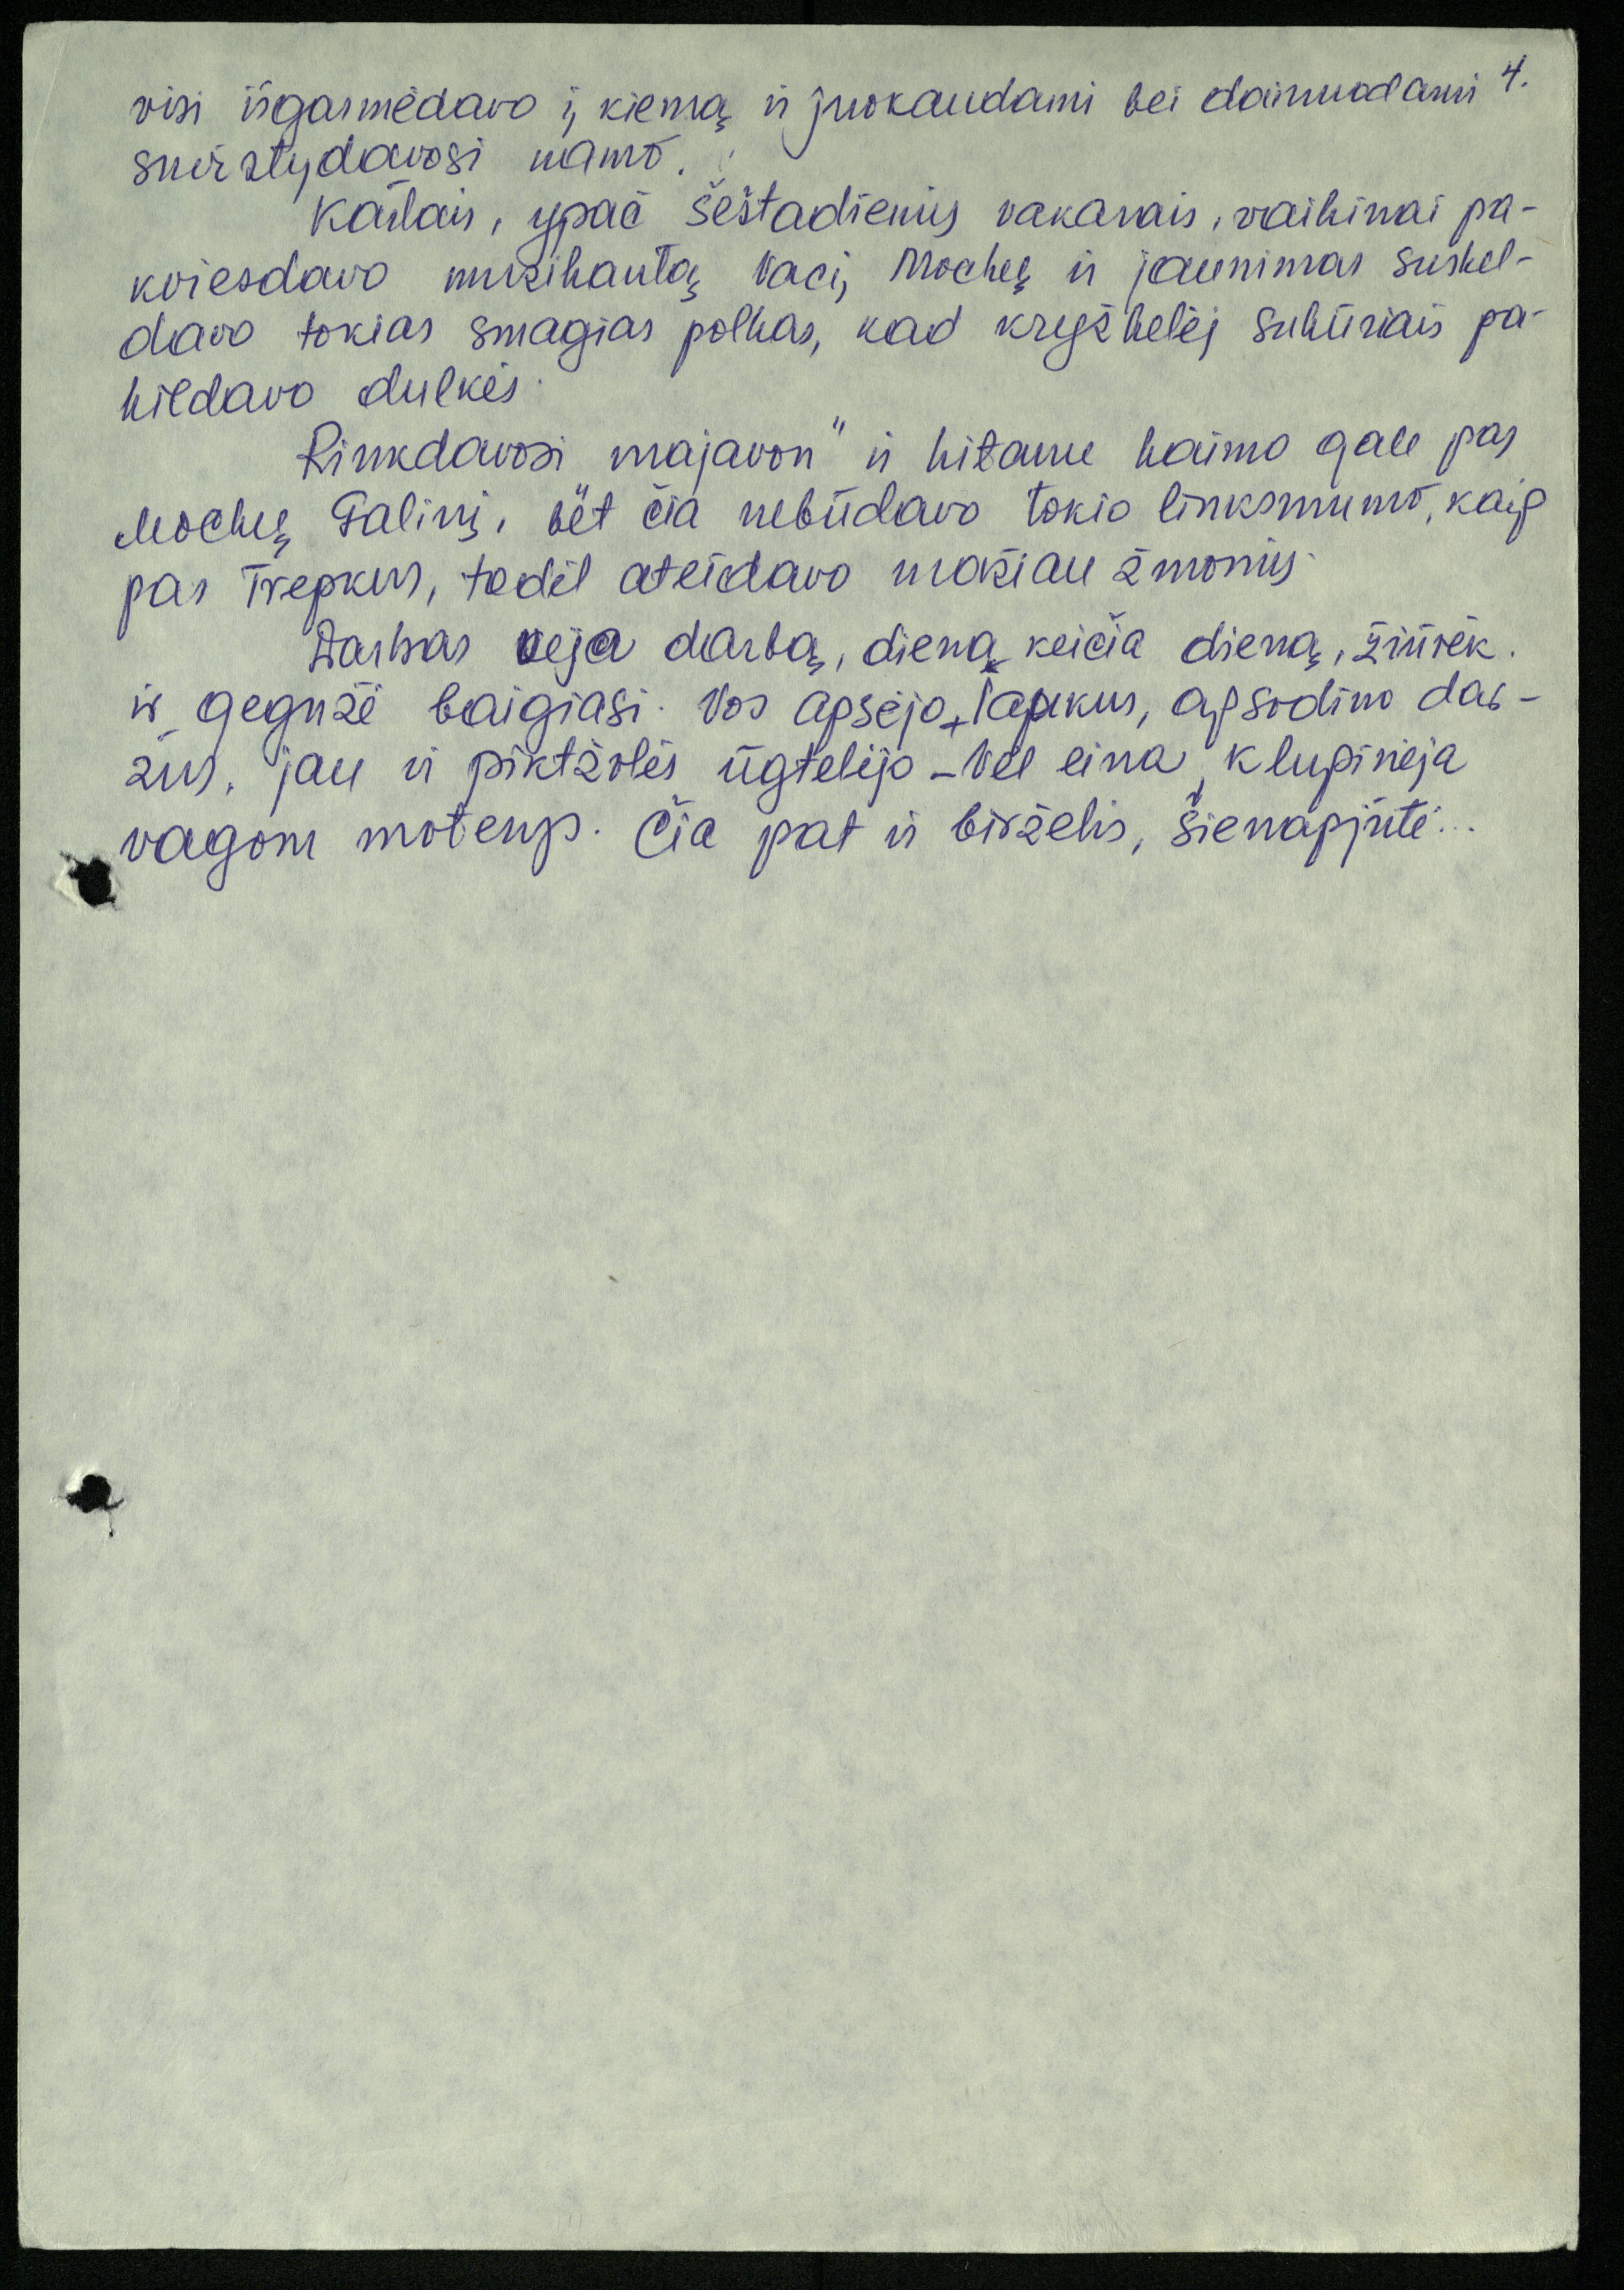 4.
visi išgarmėdavo į kiemą ir juokaudami bei dainuodami
suvirstydavosi namo.
Kartais, ypač šeštadienių vakarais, vaikinai pa-
kviesdavo muzikantą Vacį Mockų ir jaunimas suskel-
davo tokias smagias polkas, kad kryžkelėj sukūriais pa-
kildavo dulkės.
Rinkdavosi majavon" ir kitame kaimo gale pas
Mockų Galinį, bet čia nebūdavo tokio linksmumo, kaip
pas Trepkus, todėl ateidavo mažiau žmonių.
Darbas veja darbą, diena keičia dieną, žiūrėk.
ir gegužė baigiasi. Vos apsėjo laukus, apsodino dar-
žus, jau ir piktžolės ūgtelėjo - vėl eina, klupinėja
vagom moterys. Čia pat ir birželis, šienapjūtė...